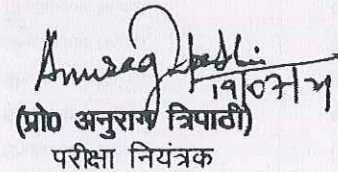 Anurag Tripathi
19/07/21
(प्रो० अनुराग त्रिपाठी)
परीक्षा नियंत्रक